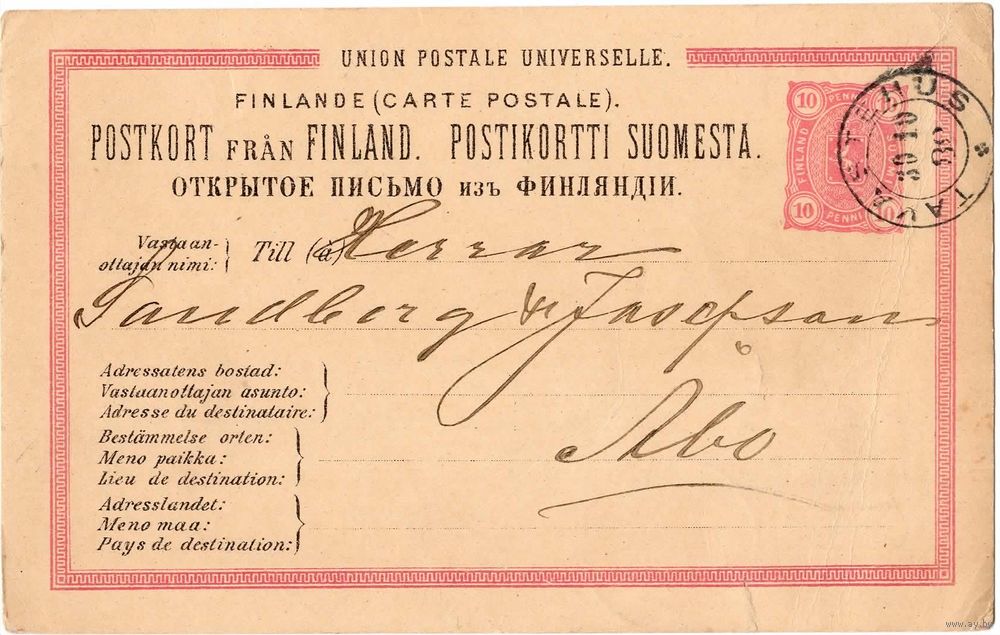 UNION POSTALE UNIVERSELLE.
FINLANDE (CARTE POSTALE).
POSTKORT FRÅN FINLAND. POSTIKORTTI SUOMESTA.
ОТКРЫТОЕ ПИСЬМО изъ ФИНЛЯНДІИ.
10 PENNI 10
FINLAND SUOMI
10 PENNI 10
TAVASTEHUS
30 10
Vastaan-
ottajan nimi: Till (à) Herrar
Sandberg & Josepson
Åbo
Adressatens bostad:
Vastaanottajan asunto:
Adresse du destinataire:
Bestämmelse orten:
Meno paikka:
Lieu de destination:
Adresslandet:
Meno maa:
Pays de destination:
www.ay.by